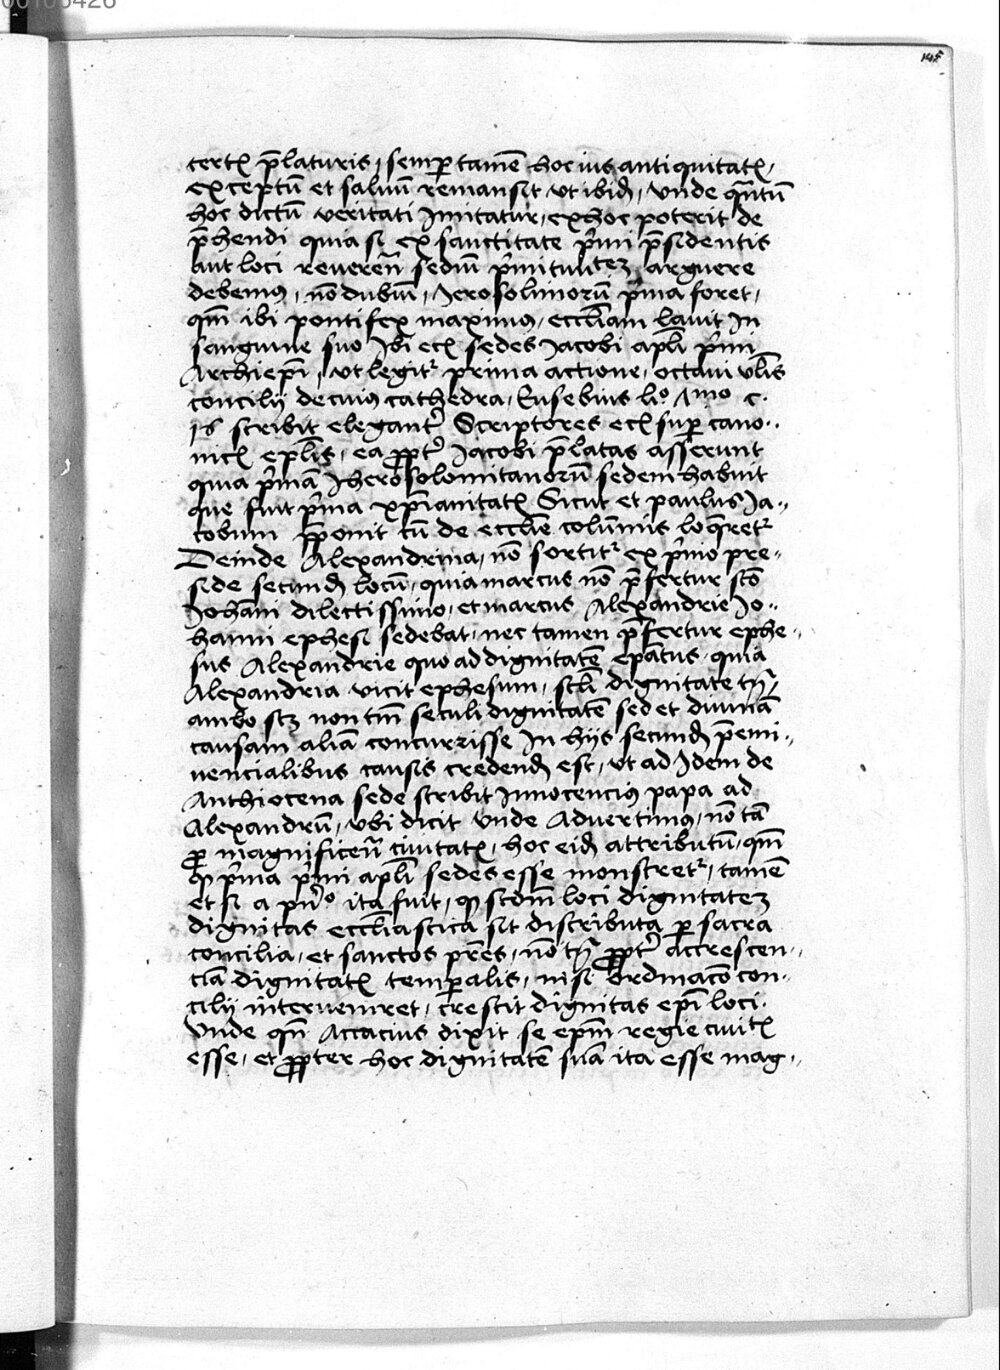 00103426
145
certꝭ p̄laturis, semꝑ tamē hoc ius antiquitatꝭ,
exceptū et saluū remansit, vt ibid̄, vnde q̄ntū
hoc dictū veritati Imitatur, ex hoc poterit de
p̄hendi quia si ex sanctitate p̄mi p̄sidentis
aut loci reuereñ sediū p̄mitiuitez arguere
debemꝰ, nō dubiū, Jerosolimorū p̄ma foret,
qm̄ ibi pontifex maximꝰ, eccl̄iam lauit In
sanguine suo Ibi ecꝭ sedes Jacobi apl̄i p̄mi
Archiep̄i, vt legitᷣ prima actione, octaui vl̄is
concilij de cuiꝰ cathedra, Eusebius li.º Amo c.
16 scribit eleganṫ Scriptores ecꝭ suꝑ cano-
nicꝭ ep̄lis, ea ꝓpṫ Jacobi p̄latas asserunt
quia p̄mā Iherosolomitanorū sedem habuit
que fuit p̄ma xp̄ianitatꝭ Sicut et paulus Ja-
cobum p̄ponit cū de eccl̄ie colūmis loq̄retᷣ
Deinde Alexandrina, nō sortitᷣ ex p̄mo pre-
side secund̄ locū, quia marcus nō p̄fertur sc̄o
Johāni dilectissimo, et marcus Alexandrie Jo-
hanni ephesi sedebat, nec tamen p̄fertur ephe-
sus Alexandrie quo ad dignitatē ep̄atus, quia
Alexandria vicit ephesum, scl̄i dignitate tn̄,
ambo scz non tm̄ seculi dignitatē sed et diuinā
causam aliā concurrisse In hijs secund̄ p̄emi-
nencialibus causis credend̄ est, vt ad Idem de
Anthiocena sede scribit Innocencius papa ad
Alexandrū, vbi dicit vnde Aduertimꝰ, nō tā
ꝓ magnificeñ ciuitatꝭ, hoc eid̄ attributū, qm̄
ꝙ p̄ma p̄mi apl̄i sedes esse monstretᷣ, tamē
et si a pn̄º ita fuit, ꝙ scdm̄ loci dignitatez
dignitas eccl̄iastica sit discributa ꝑ sacra
concilia, et sanctos pr̄es, nō tn̄ ꝓpṫ Accrescen-
ciā dignitatꝭ temꝑalis, nisi ordinac̄o con-
cilij interueniret, crescit dignitas ep̄i loci.
Vnde qn̄ Accacius dixit se ep̄m regie ciuitꝭ
esse, et ꝓpter hoc dignitatē suā ita esse mag-